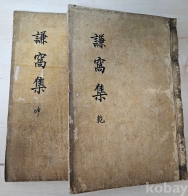 謙窩集
乾
謙窩集
坤
kobay